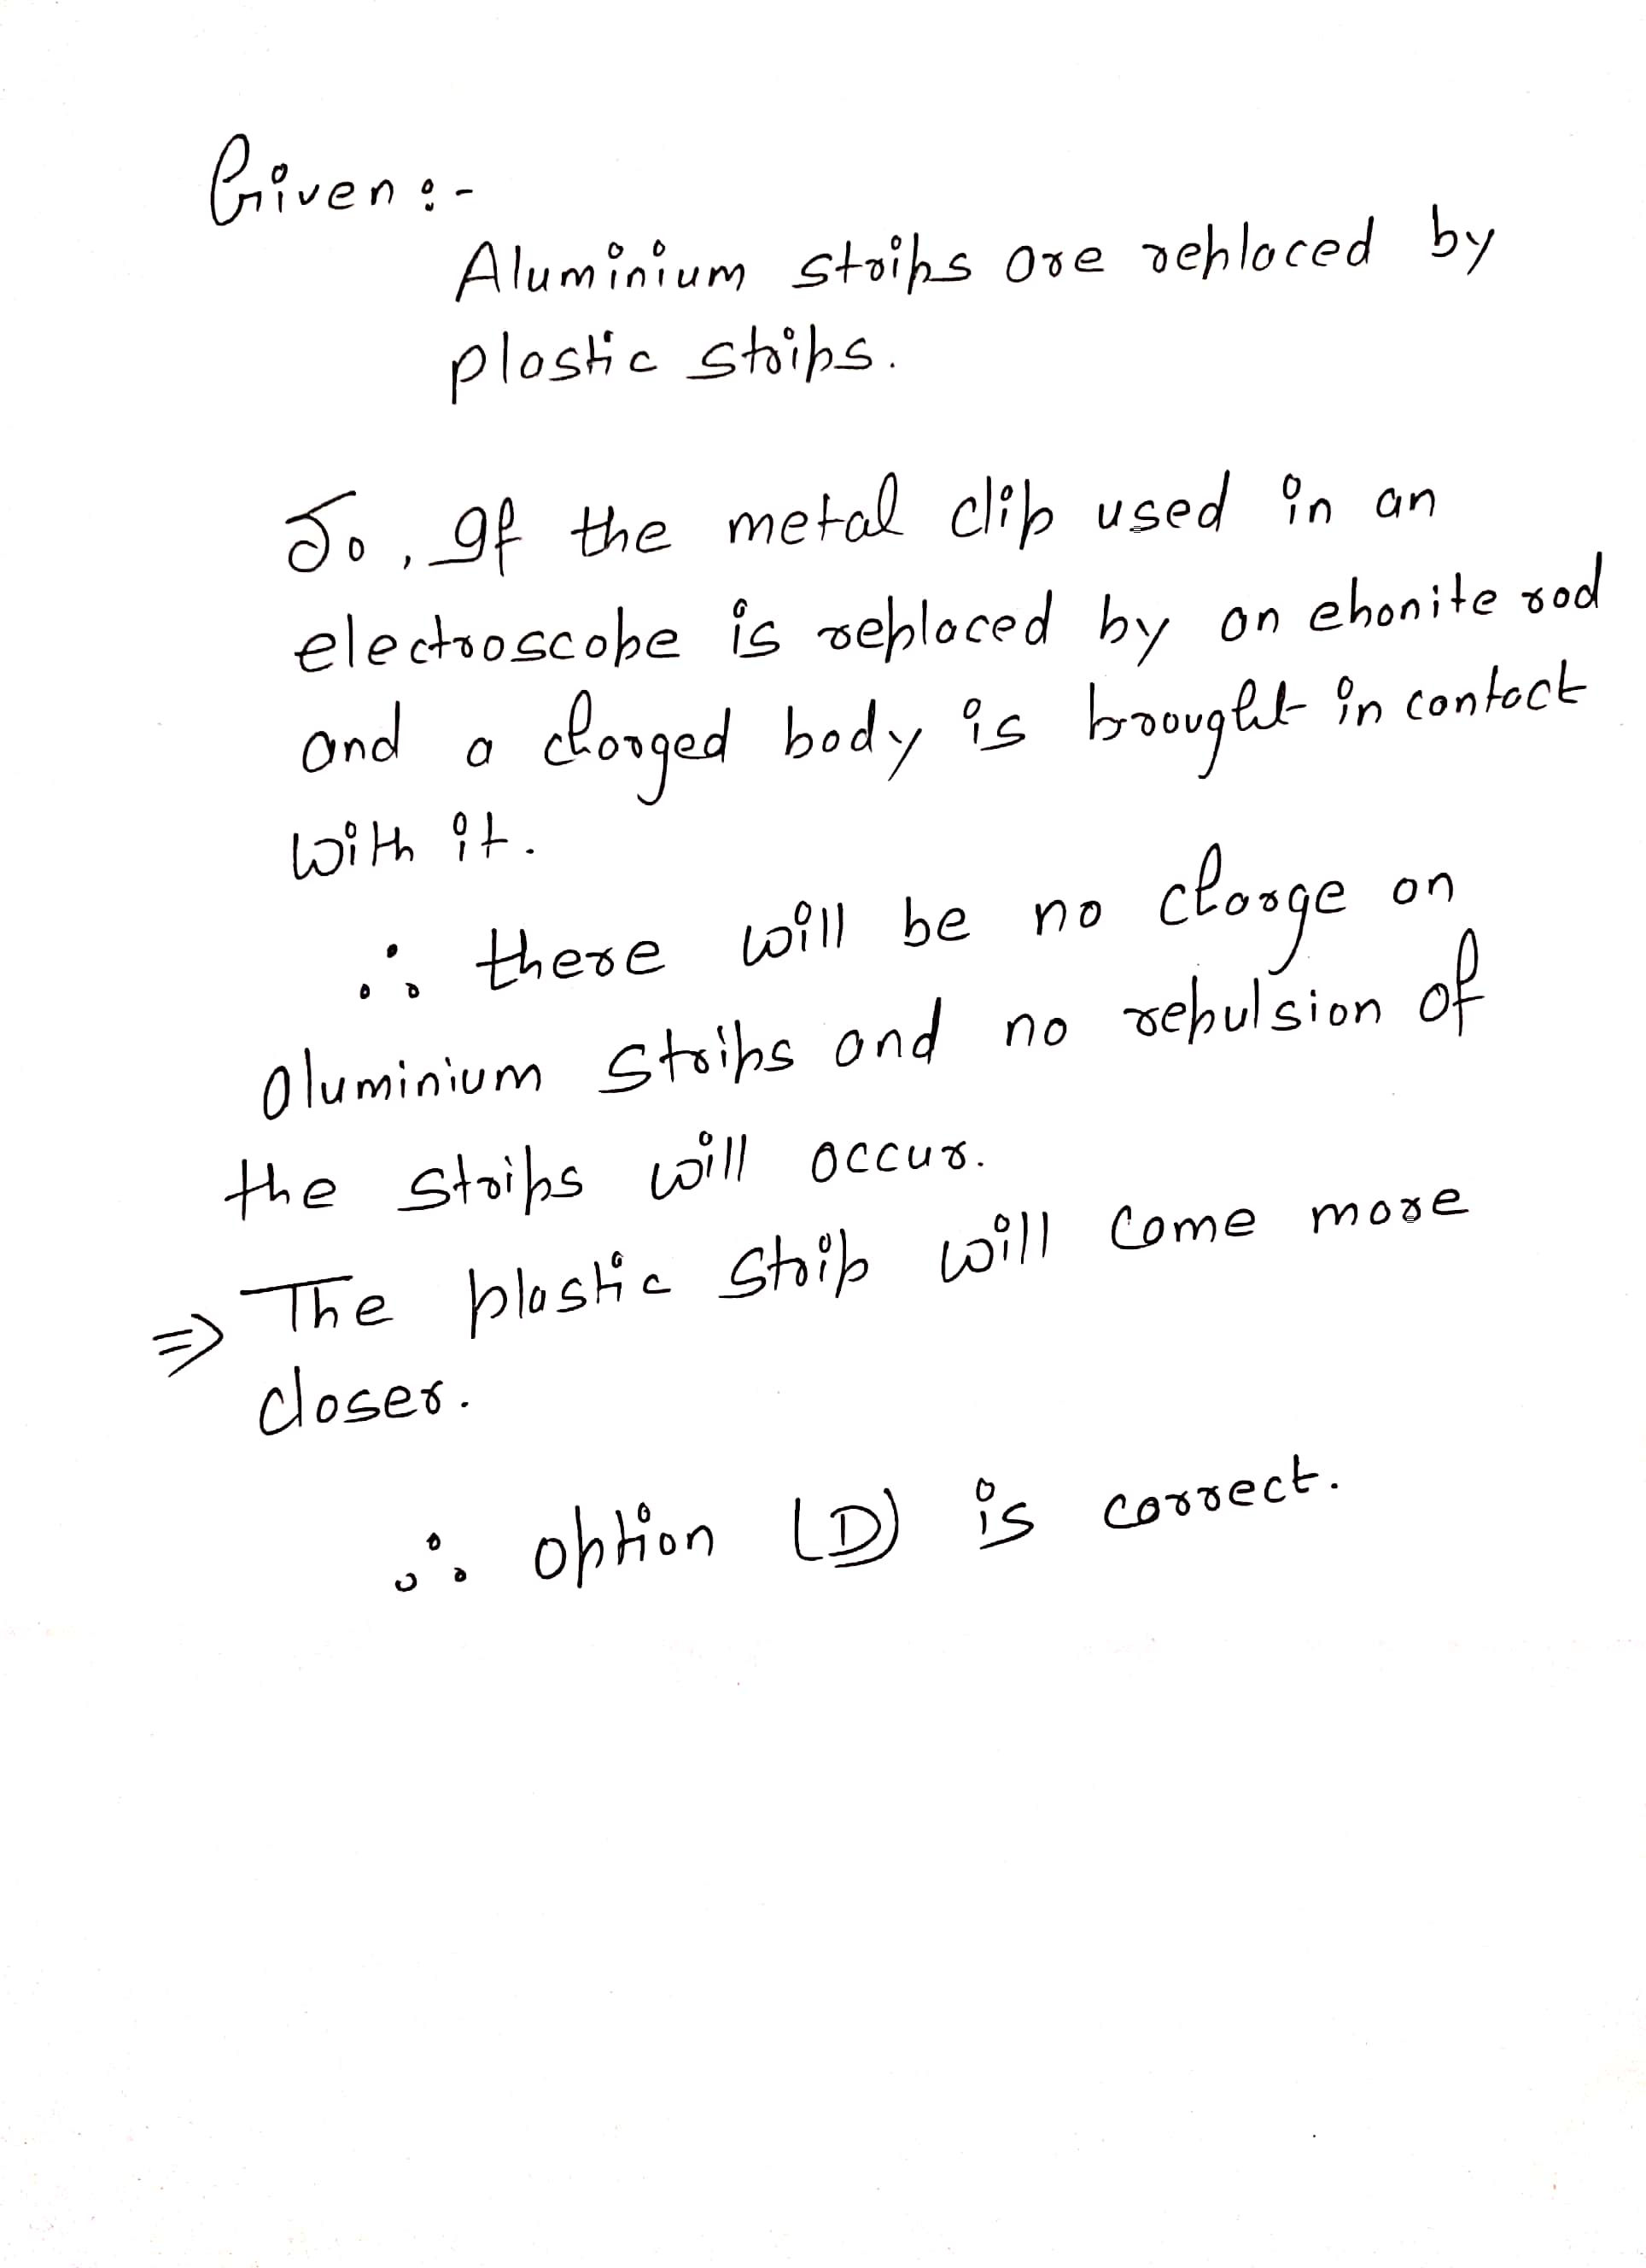 Given :-
Aluminium strips are replaced by
plastic strips.
So, If the metal clip used in an
electroscope is replaced by an ebonite rod
and a charged body is brought in contact
with it.
∴ there will be no charge on
aluminium strips and no repulsion of
the strips will occur.
⇒ The plastic strip will come more
closer.
∴ option (D) is correct.